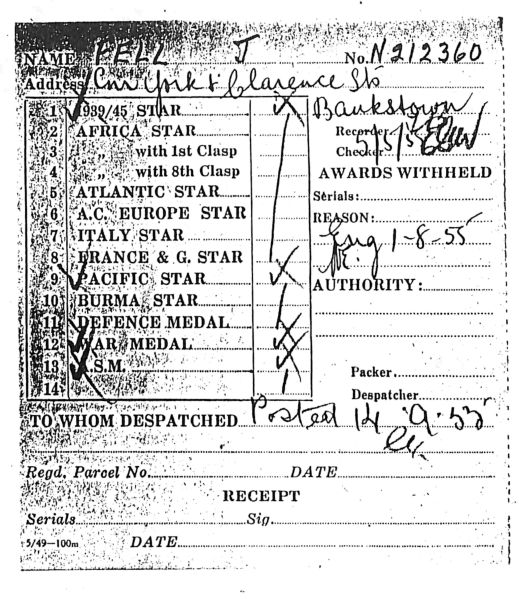 NAME FELL J No. N212360
Address Cnr York & Clarence Sts
1 1939/45 STAR Bankstown
2 AFRICA STAR Recorder
3 „ with 1st Clasp Checker
4 „ with 8th Clasp AWARDS WITHHELD
5 ATLANTIC STAR Serials:
6 A.C. EUROPE STAR REASON:
7 ITALY STAR 1-8-55
8 FRANCE & G. STAR
9 PACIFIC STAR AUTHORITY:
10 BURMA STAR
11 DEFENCE MEDAL
12 WAR MEDAL
13 A.S.M. Packer
14 Despatcher
TO WHOM DESPATCHED Posted 14.9.55
Regd. Parcel No. DATE
RECEIPT
Serials Sig.
5/49—100m DATE